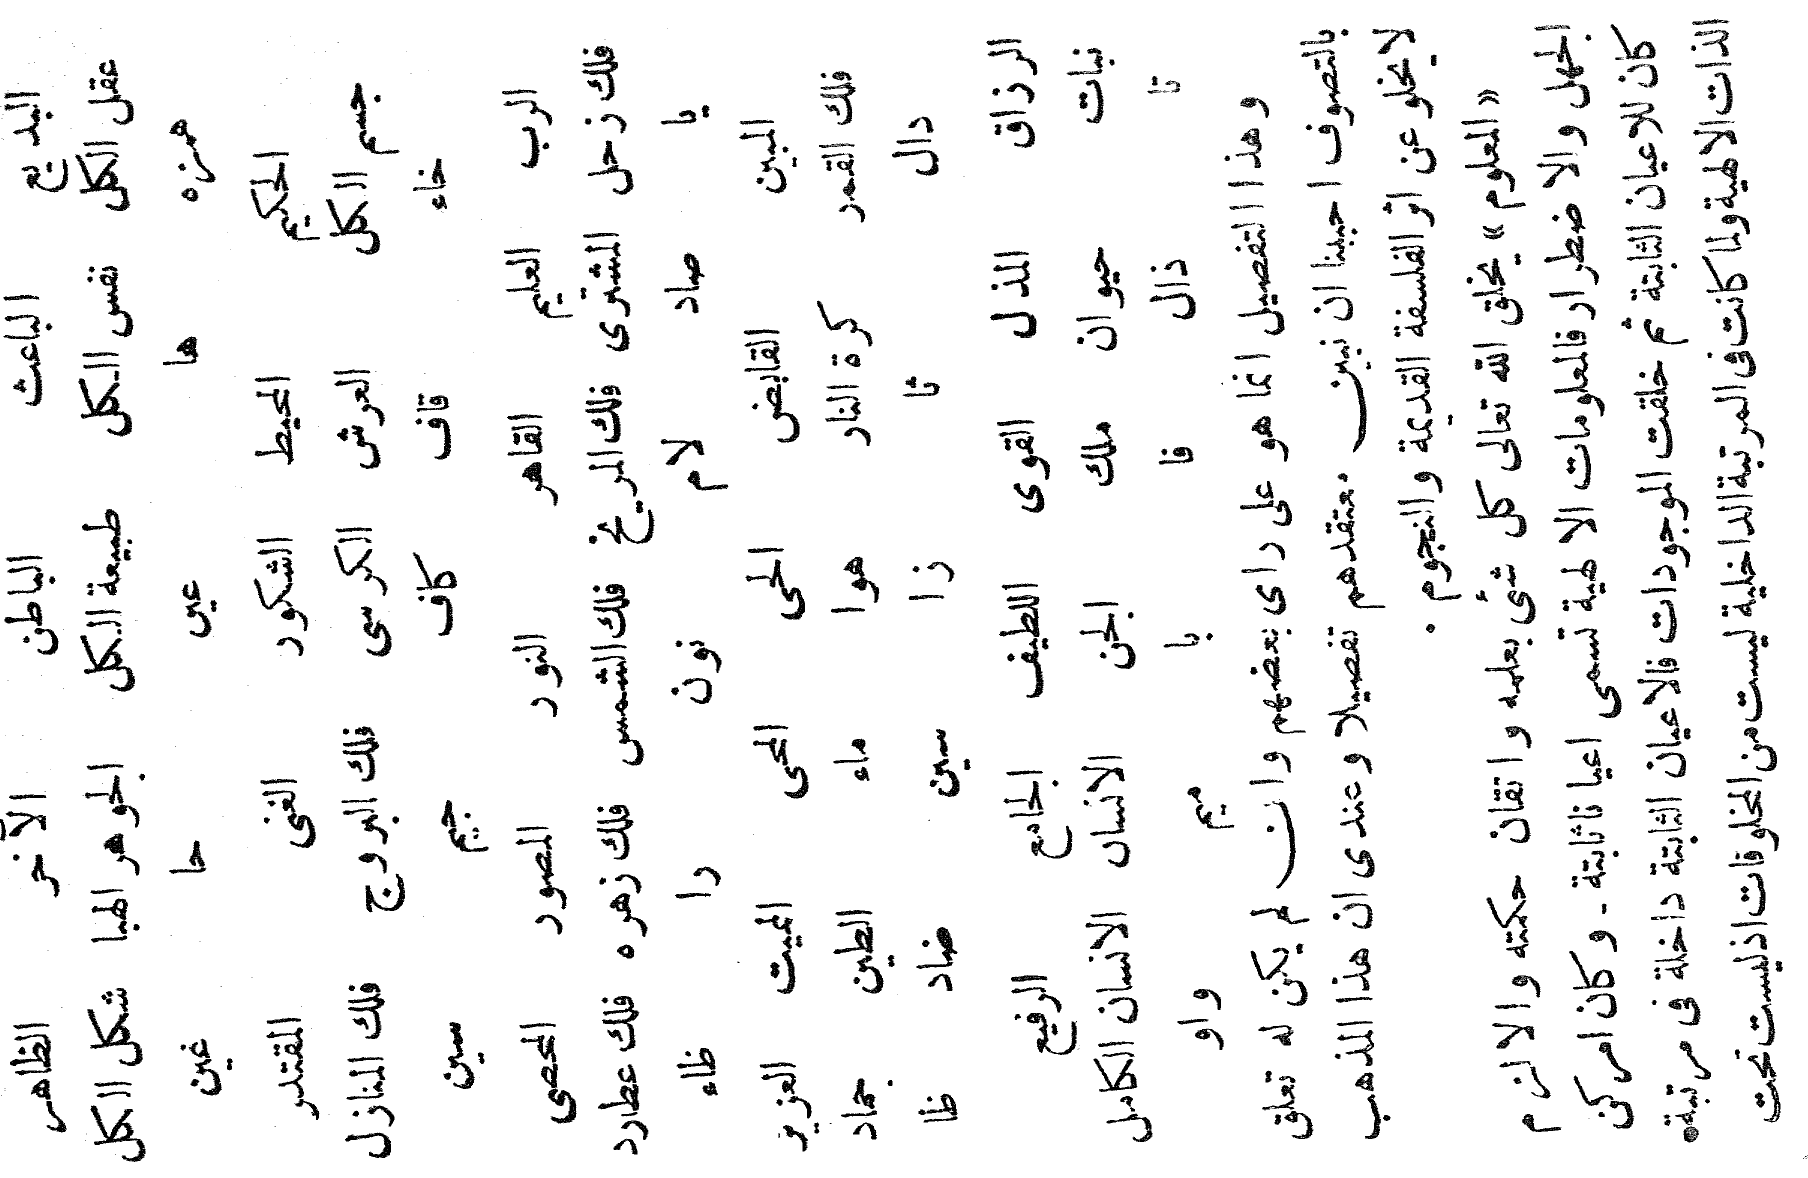 البديع الباعث الباطن الآخر الظاهر
عقل الكل نفس الكل طبيعة الكل الجوهر الهبا شكل الكل
همزه ها عين حا غين
الحكيم المحيط الشكور الغنى المقتدر
جسم الكل العرش الكرسى فلك البروج فلك المنازل
خاء قاف كاف جيم سين
الرب العليم القاهر النور المصور المحصى
فلك زحل المشترى فلك المريخ فلك الشمس فلك زهره فلك عطارد
يا صاد لام نون را طاء
المبين القابض الحى الحى المميت العزيز
فلك القمر كرة النار هوا ماء الطين جماد
دال تا زا سين ضاد ظا
الرزاق المذل القوى اللطيف الجامع الرفيع
نبات حيوان ملك الجن الانسان الانسان الكامل
ثا ذال فا با ميم واو
وهذا التفصيل انما هو على راى بعضهم وان لم يكن له تعلق
بالتصوف احببنا ان نبين معتقدهم تفصيلا وعندى ان هذا المذهب
لا يخلو عن اثر الفلسفة القديمة والنجوم .
«المعلوم» يخلق الله تعالى كل شئ بعلمه واتقان حكمته والا لزم
الجهل والاضطرار فالمعلومات الالهية تسمى اعيانا ثابتة - وكان امر كن
كان للاعيان الثابتة ثم خلقت الموجودات فالاعيان الثابتة داخلة فى مرتبة
الذات الالهية ولما كانت فى المرتبة الداخلية ليست من المخلوقات اذ ليست تحت